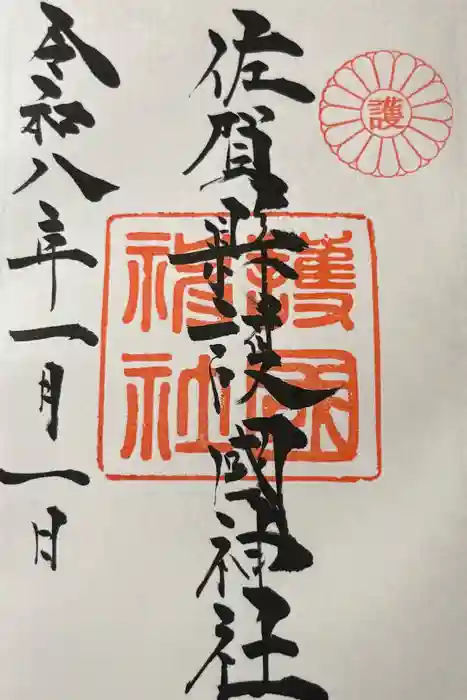 護
佐賀縣護國神社
護國
神社
令和八年一月一日